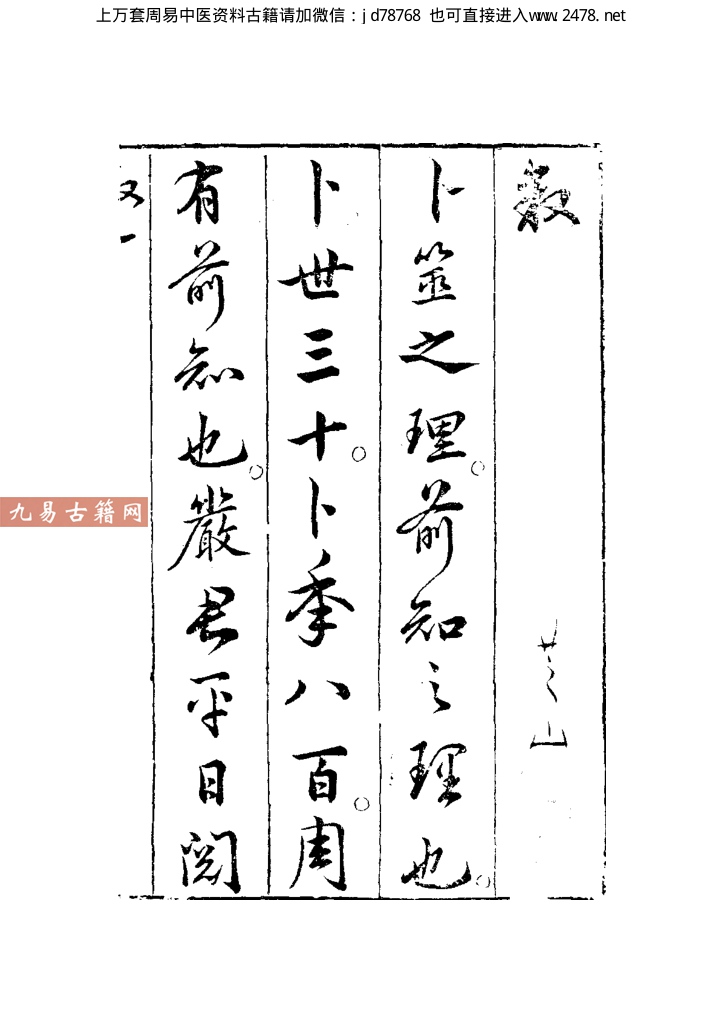 上万套周易中医资料古籍请加微信：jd78768 也可直接进入www.2478.net
敘
芝山
卜筮之理。前知之理也。
卜世三十。卜季八百。周
有前知也。嚴君平日閱
九易古籍网